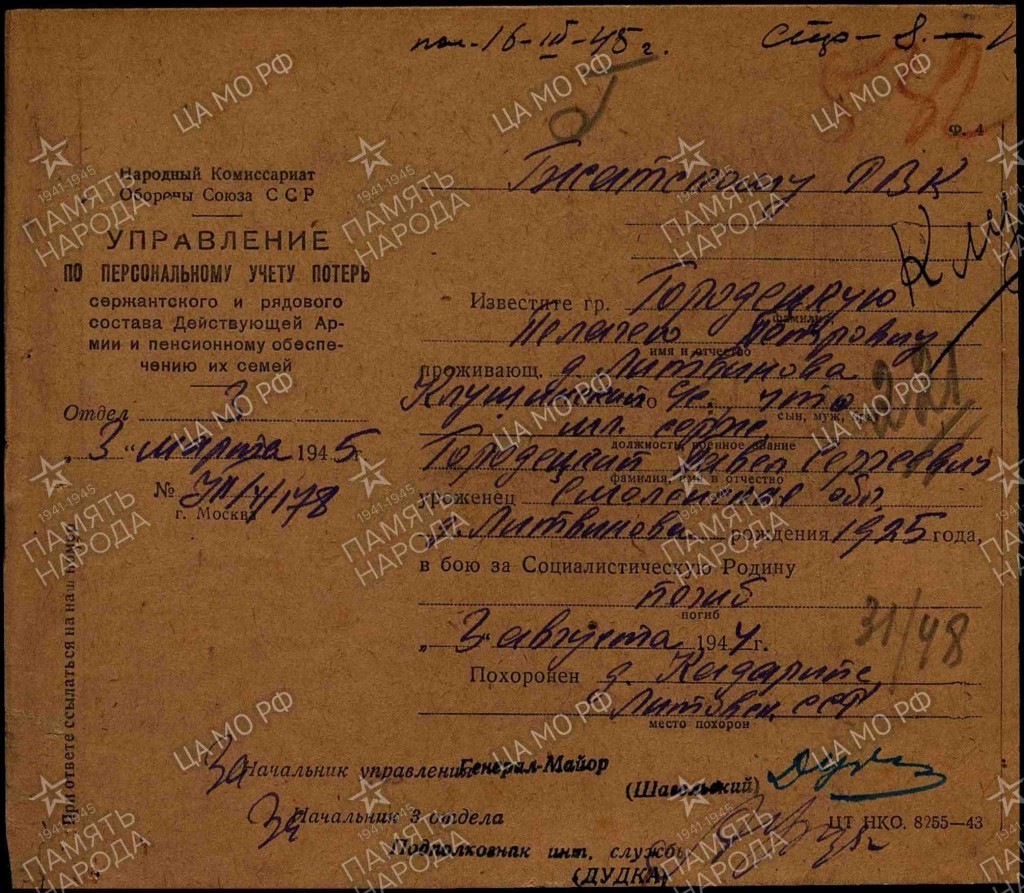 пол-16-III-45г.
Ф. 4
Народный Комиссариат
Обороны Союза ССР
УПРАВЛЕНИЕ
ПО ПЕРСОНАЛЬНОМУ УЧЕТУ ПОТЕРЬ
сержантского и рядового
состава Действующей Ар-
мии и пенсионному обеспе-
чению их семей
Отдел 3
„3“ марта 1945 г.
г. Москва
При ответе ссылаться на наш номер
Гжатскому РВК
Известите гр. Городецкую
фамилия
Пелагею Петровну
имя и отчество
проживающ. д. Литвинова
Клушинский с/с, что
сын, муж,
мл. серж.
должность, военное звание
Городецкий Павел Сергеевич
фамилия, имя и отчество
уроженец Смоленская обл.
д. Литвинова рождения 1925 года,
в бою за Социалистическую Родину
погиб
погиб
„3“ августа 1944 г.
221
31/48
Похоронен д.
Литовск. ССР
место похорон
За Начальник управления Генерал-Майор
(Шавельский)
За Начальник 3 отдела
Подполковник инт. службы
(ДУДКА)
ЦТ НКО. 8255—43
ЦА МО РФ
1941-1945
ПАМЯТЬ
НАРОДА